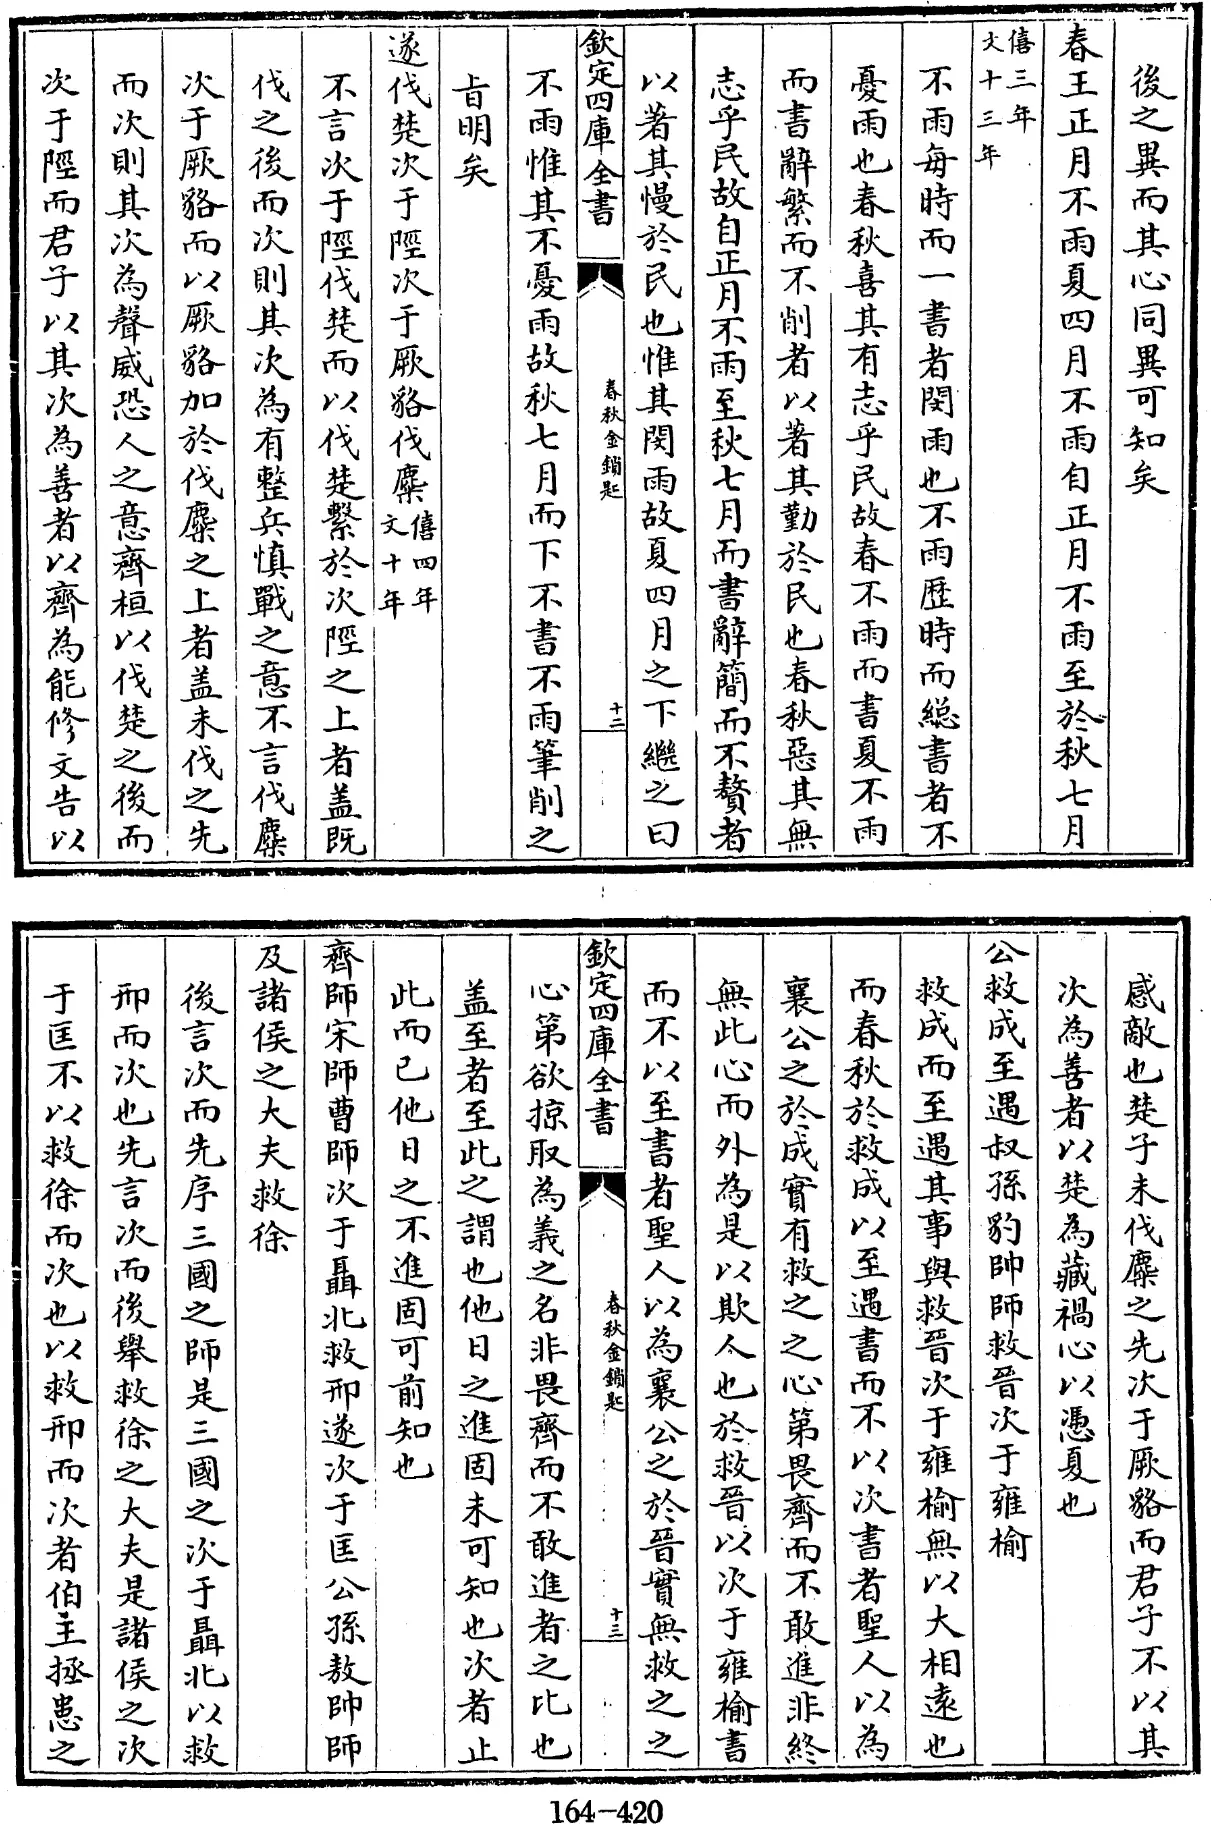 後之異而其心同異可知矣
春王正月不雨夏四月不雨自正月不雨至於秋七月
僖三年
文十三年
不雨每時而一書者閔雨也不雨歷時而總書者不
憂雨也春秋喜其有志乎民故春不雨而書夏不雨
而書辭繁而不削者以著其勤於民也春秋惡其無
志乎民故自正月不雨至秋七月而書辭簡而不贅者
以著其慢於民也惟其閔雨故夏四月之下繼之曰
欽定四庫全書
春秋金鎖匙
十二
不雨惟其不憂雨故秋七月而下不書不雨筆削之
旨明矣
遂伐楚次于陘次于厥貉伐麋
僖四年
文十年
不言次于陘伐楚而以伐楚繫於次陘之上者盖既
伐之後而次則其次為有整兵慎戰之意不言伐麋
次于厥貉而以厥貉加於伐麋之上者盖未伐之先
而次則其次為聲威恐人之意齊桓以伐楚之後而
次于陘而君子以其次為善者以齊為能修文告以
感敵也楚子未伐麋之先次于厥貉而君子不以其
次為善者以楚為藏禍心以憑夏也
公救成至遇叔孫豹帥師救晉次于雍榆
救成而至遇其事與救晉次于雍榆無以大相遠也
而春秋於救成以至遇書而不以次書者聖人以為
襄公之於成實有救之之心第畏齊而不敢進非終
無此心而外為是以欺人也於救晉以次于雍榆書
而不以至書者聖人以為襄公之於晉實無救之之
欽定四庫全書
春秋金鎖匙
十三
心第欲掠取為義之名非畏齊而不敢進者之比也
盖至者至此之謂也他日之進固未可知也次者止
此而已他日之不進固可前知也
齊師宋師曹師次于聶北救邢遂次于匡公孫敖帥師
及諸侯之大夫救徐
後言次而先序三國之師是三國之次于聶北以救
邢而次也先言次而後舉救徐之大夫是諸侯之次
于匡不以救徐而次也以救邢而次者伯主拯患之
164-420